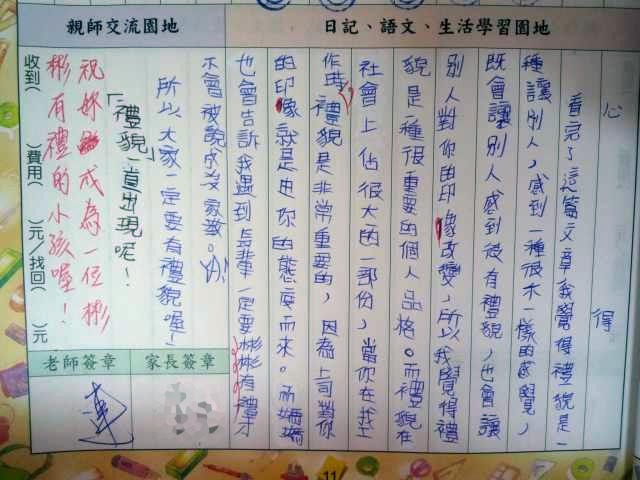 日記、語文、生活學習園地
親師交流園地
心得
看完了這篇文章我覺得禮貌是一
種讓別人,感到一種很木一樣的感覺,
既會讓別人感到彼有禮貌,也會讓
別人對你的印像改變,所以我覺得禮
貌是一種很重要的個人品格。而禮貌在
社會上佔很大的一部份,當你在找工
作時,禮貌是非常重要的,因為上司對你
的印像就是由你的態度而來。而媽媽
也會告訴我遇到長輩一定要彬彬有禮才
不會被說成沒家教。
所以大家一定要有禮貌喔!
「禮貌」一直出現呢!
祝妳成為一位彬
彬有禮的小孩喔!
收到( )費用( )元/找回( )元
家長簽章
老師簽章
11